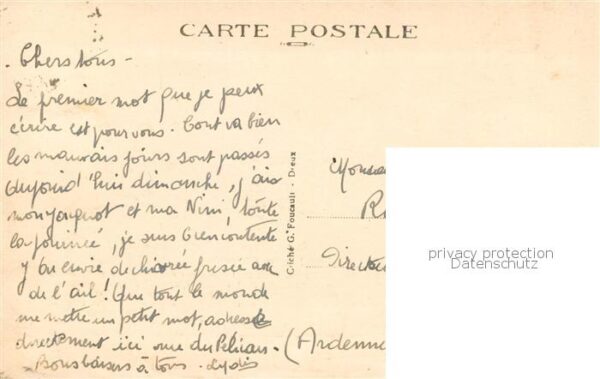 CARTE POSTALE
- Chers tous -
Le premier mot que je peux
écrire est pour vous. Tout va bien
les mauvais jours sont passés
aujourd'hui dimanche, j'ai
mon Jacquot et ma Nini, toute
la journée, je suis bien contente
j'ai envie de chicorée frisée avec
de l'ail! Que tout le monde
me mette un petit mot, adresse
directement ici rue du Pélican.
Bons baisers à tous - Lydie
Cliché G. Foucault - Dreux
Directeu
(Ardenn
privacy protection
Datenschutz